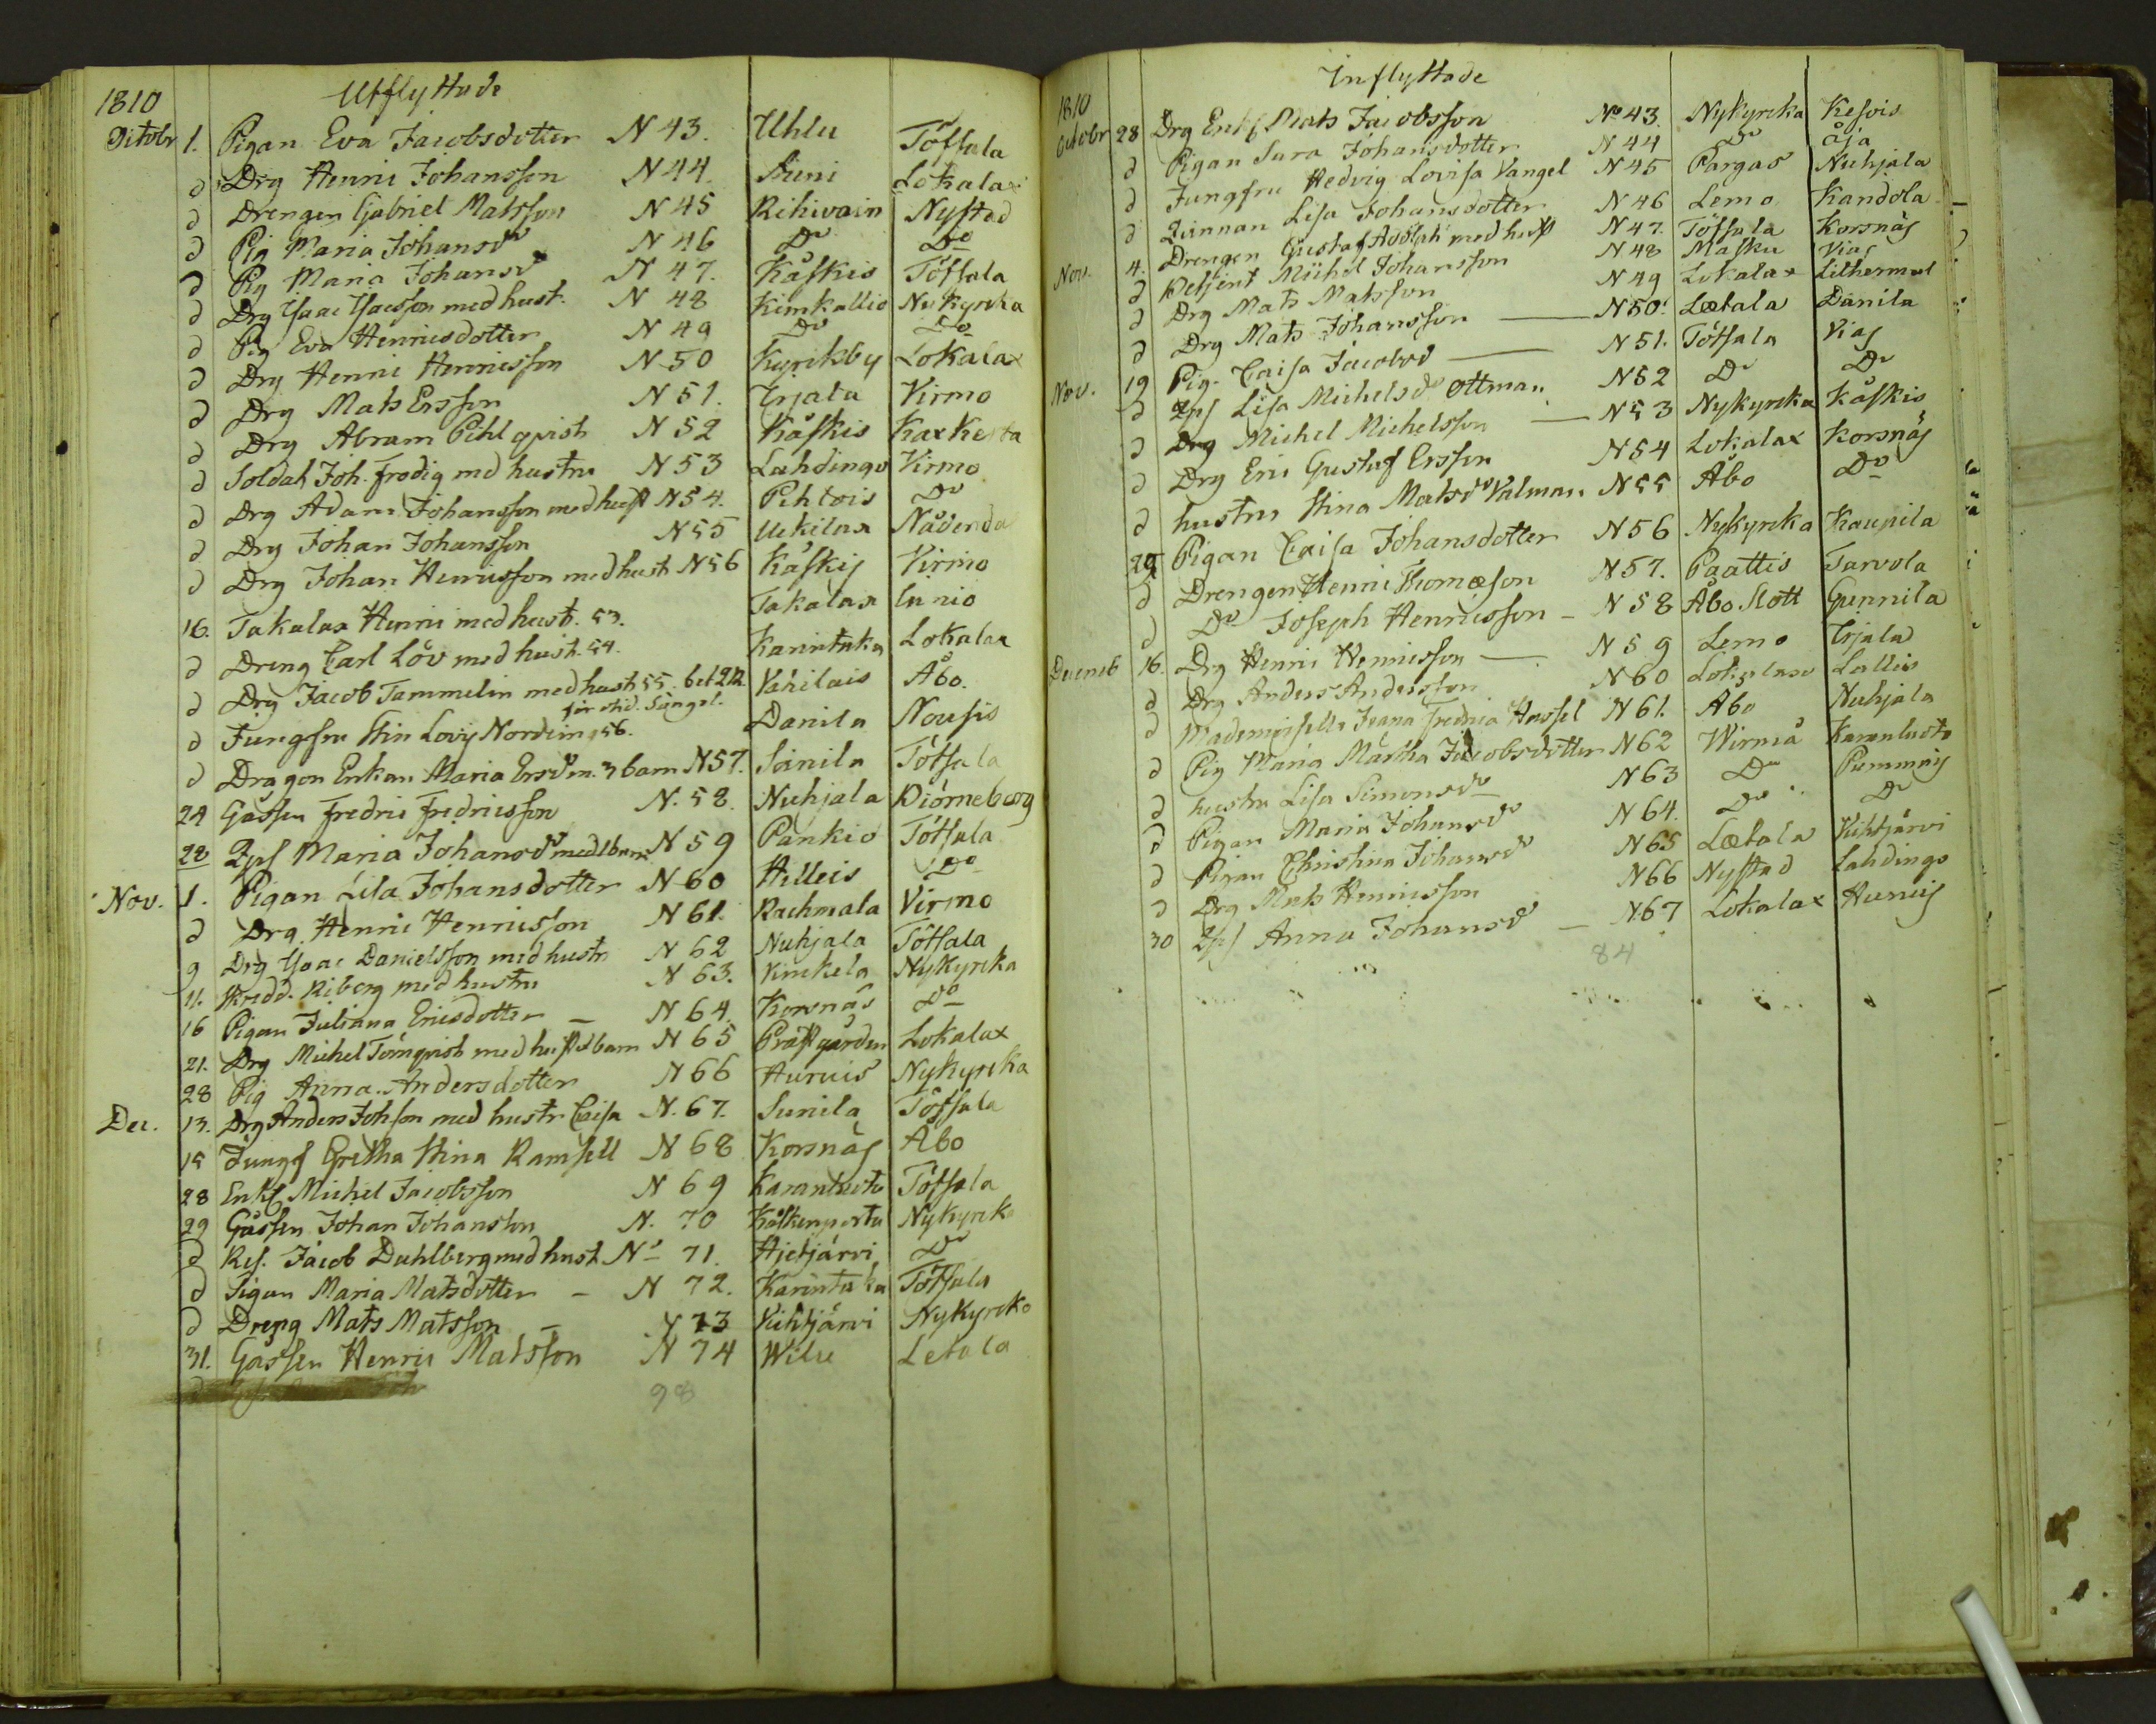 1810 Utflyttade
Octobr 1. Pigan Eva Jacobsdotter N 43. Uhlu Töfsala
d Drg Henric Johansson N 44. Lokalax
d Drengen Gabriel Matsson N 45 Rihivain Nystad
d Pig Maria Johansdr N 46 Do Do
d Pig Maria Johansdr N 47. Kåskis Töfsala
d Drg Isaac Isacsson med hust. N 48 Kimkallio Nykyrcka
d Pig Eva Henricsdotter N 49 Do Do
d Drg Henric Henricsson N 50 Kyrikby Lokalax
d Drg Mats Ersson N 51. Erjala Virmo
d Drg Abram Pihlqvist N 52 Kåskis Karkerta
d Soldat Joh. Frodig med hustru N 53 Lahdingo Virmo
d Drg Adam Johansson med hust N 54. Pehtois Do
d Drg Johan Johansson N 55 Uckilax Nådendal
d Drg Johan Henricsson med hust N 56 Kåskis Virmo
16. Takalax Henric med hust. 53. Takalax Eunio
d Dreng Carl Löv med hust. 54. Karintaka Lokalax
d Drg Jacob Tammelin med hust 55. bet 212 Vahilais Åbo.
d Jungfru Stin Lovis Nordein 56. Danila Nousis
d Dragon Enkan Maria Ersdr m. 3 barn N 57. Soinila Töfsala
24 Gåssen Fredric Fredricsson N. 58. Nuhjala Biörneborg
28 Maria Johansdr med 1 barn N 59 Pankio Töfsala
Nov. 1. Pigan Lisa Johansdotter N 60 Hilleis Do
d Drg Henric Henricsson N 61. Rachmala Virmo
9 Drg Isaac Danielsson med hustr N 62 Nuhjala Töfsala
11. Skredd. Riberg med hustru N 63. Vinckela Nykyrcka
16 Pigan Juliana Ericsdotter N 64. Korsnäs Do
21. Drg Michel Törnqvist med hust & barn N 65 Prästgården Lokalax
28 Pig Anna Andersdotter N 66 Huruis Nykyrcka
Dec. 13. Drg Anders Johsson med hustr Caisa N. 67. Sunila Töfsala
15 Jungf Gretha Stina Ramsell N 68 Korsnäs Åbo
28 Enkl Michel Jacobsson N 69 Karanlusto Töfsala
29 Gåssen Johan Johansson N. 70 Kåskenperta Nykyrcko
d Ref. Jacob Dahlberg med hust No 71. Hietjärvi Do
d Pigan Maria Matsdotter N 72. Karintaka Töfsala
d Dreng Mats Matsson N 73 Vihtjärvi Nykyrcko
31. Gåssen Henric Matsson N 74 Letala
98
1810 Inflyttade
Octobr 28 Drg Enkl Mats Jacobsson No 43. Nykyrcka Kesois
d Pigan Sara Johansdotter N 44 Do Äjä
d Jungfru Hedvig Lovisa Vangel N 45 Pargas Nuhjala
d Qvinnan Lisa Johansdotter N 46 Lemo Kandola
Nov. 4. Drengen Gustaf Adolph med hust N 47. Töfsala Korsnäs
d Michel Johansson N 48 Masku Vias
d Drg Mats Matsson N 49 Lokalax
d Drg Mats Johansson N 50. Lætala Danila
Nov. 19 Pig. Caisa Jacobsd N 51. Töfsala Vias
d Lisa Michelsdr Ottman N 52 Do Do
d Drg Michel Michelsson N 53 Nykyrcka Kåskis
d Drg Eric Gustaf Ersson N 54 Lokalax Korsnäs
d hustru Stina Matsdr Valman N 55 Åbo Do
25 Pigan Caisa Johansdotter N 56 Nykyrcka Kaupila
d Drengen Henric Thomæson N 57. Paattis Tarvola
d Do Joseph Henricsson N 58 Åbo Slott Gunnila
Decemb 16. Drg Henric Henricsson N 59 Lemo Erjala
d Drg Anders Andersson N 60 Lokalax Lallis
d Mademoiselle Jeana Fredrica Hassel N 61. Åbo Nuhjala
d Pig Maria Martha Jacobsdotter N 62 Wirmå Karanlusto
d hustru Lisa Simonsdr N 63 Do
d Pigan Maria Johansdr N 64. Do Do
d Pigan Christina Johansdr N 65 Lætala Vihtjärvi
d Drg Mats Henricsson N 66 Nystad Lahdingo
30 Anna Johansd N. 67 Lokalax
84